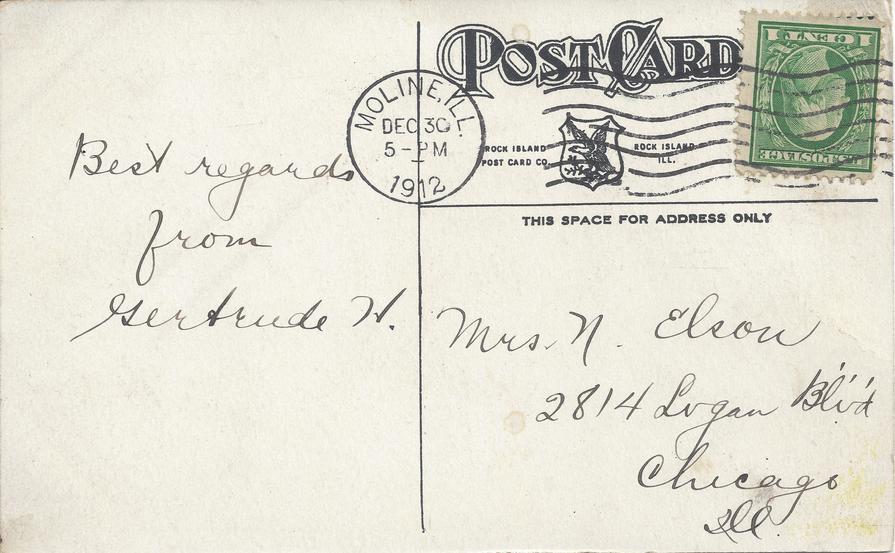 POST CARD
1 CENT
U.S. POSTAGE
MOLINE, ILL.
DEC 30
5 - PM
1912
ROCK ISLAND
POST CARD CO.
ROCK ISLAND,
ILL.
THIS SPACE FOR ADDRESS ONLY
Best regards
from
Gertrude H.
Mrs. N. Elson
2814 Logan Blv'd
Chicago
Ill.